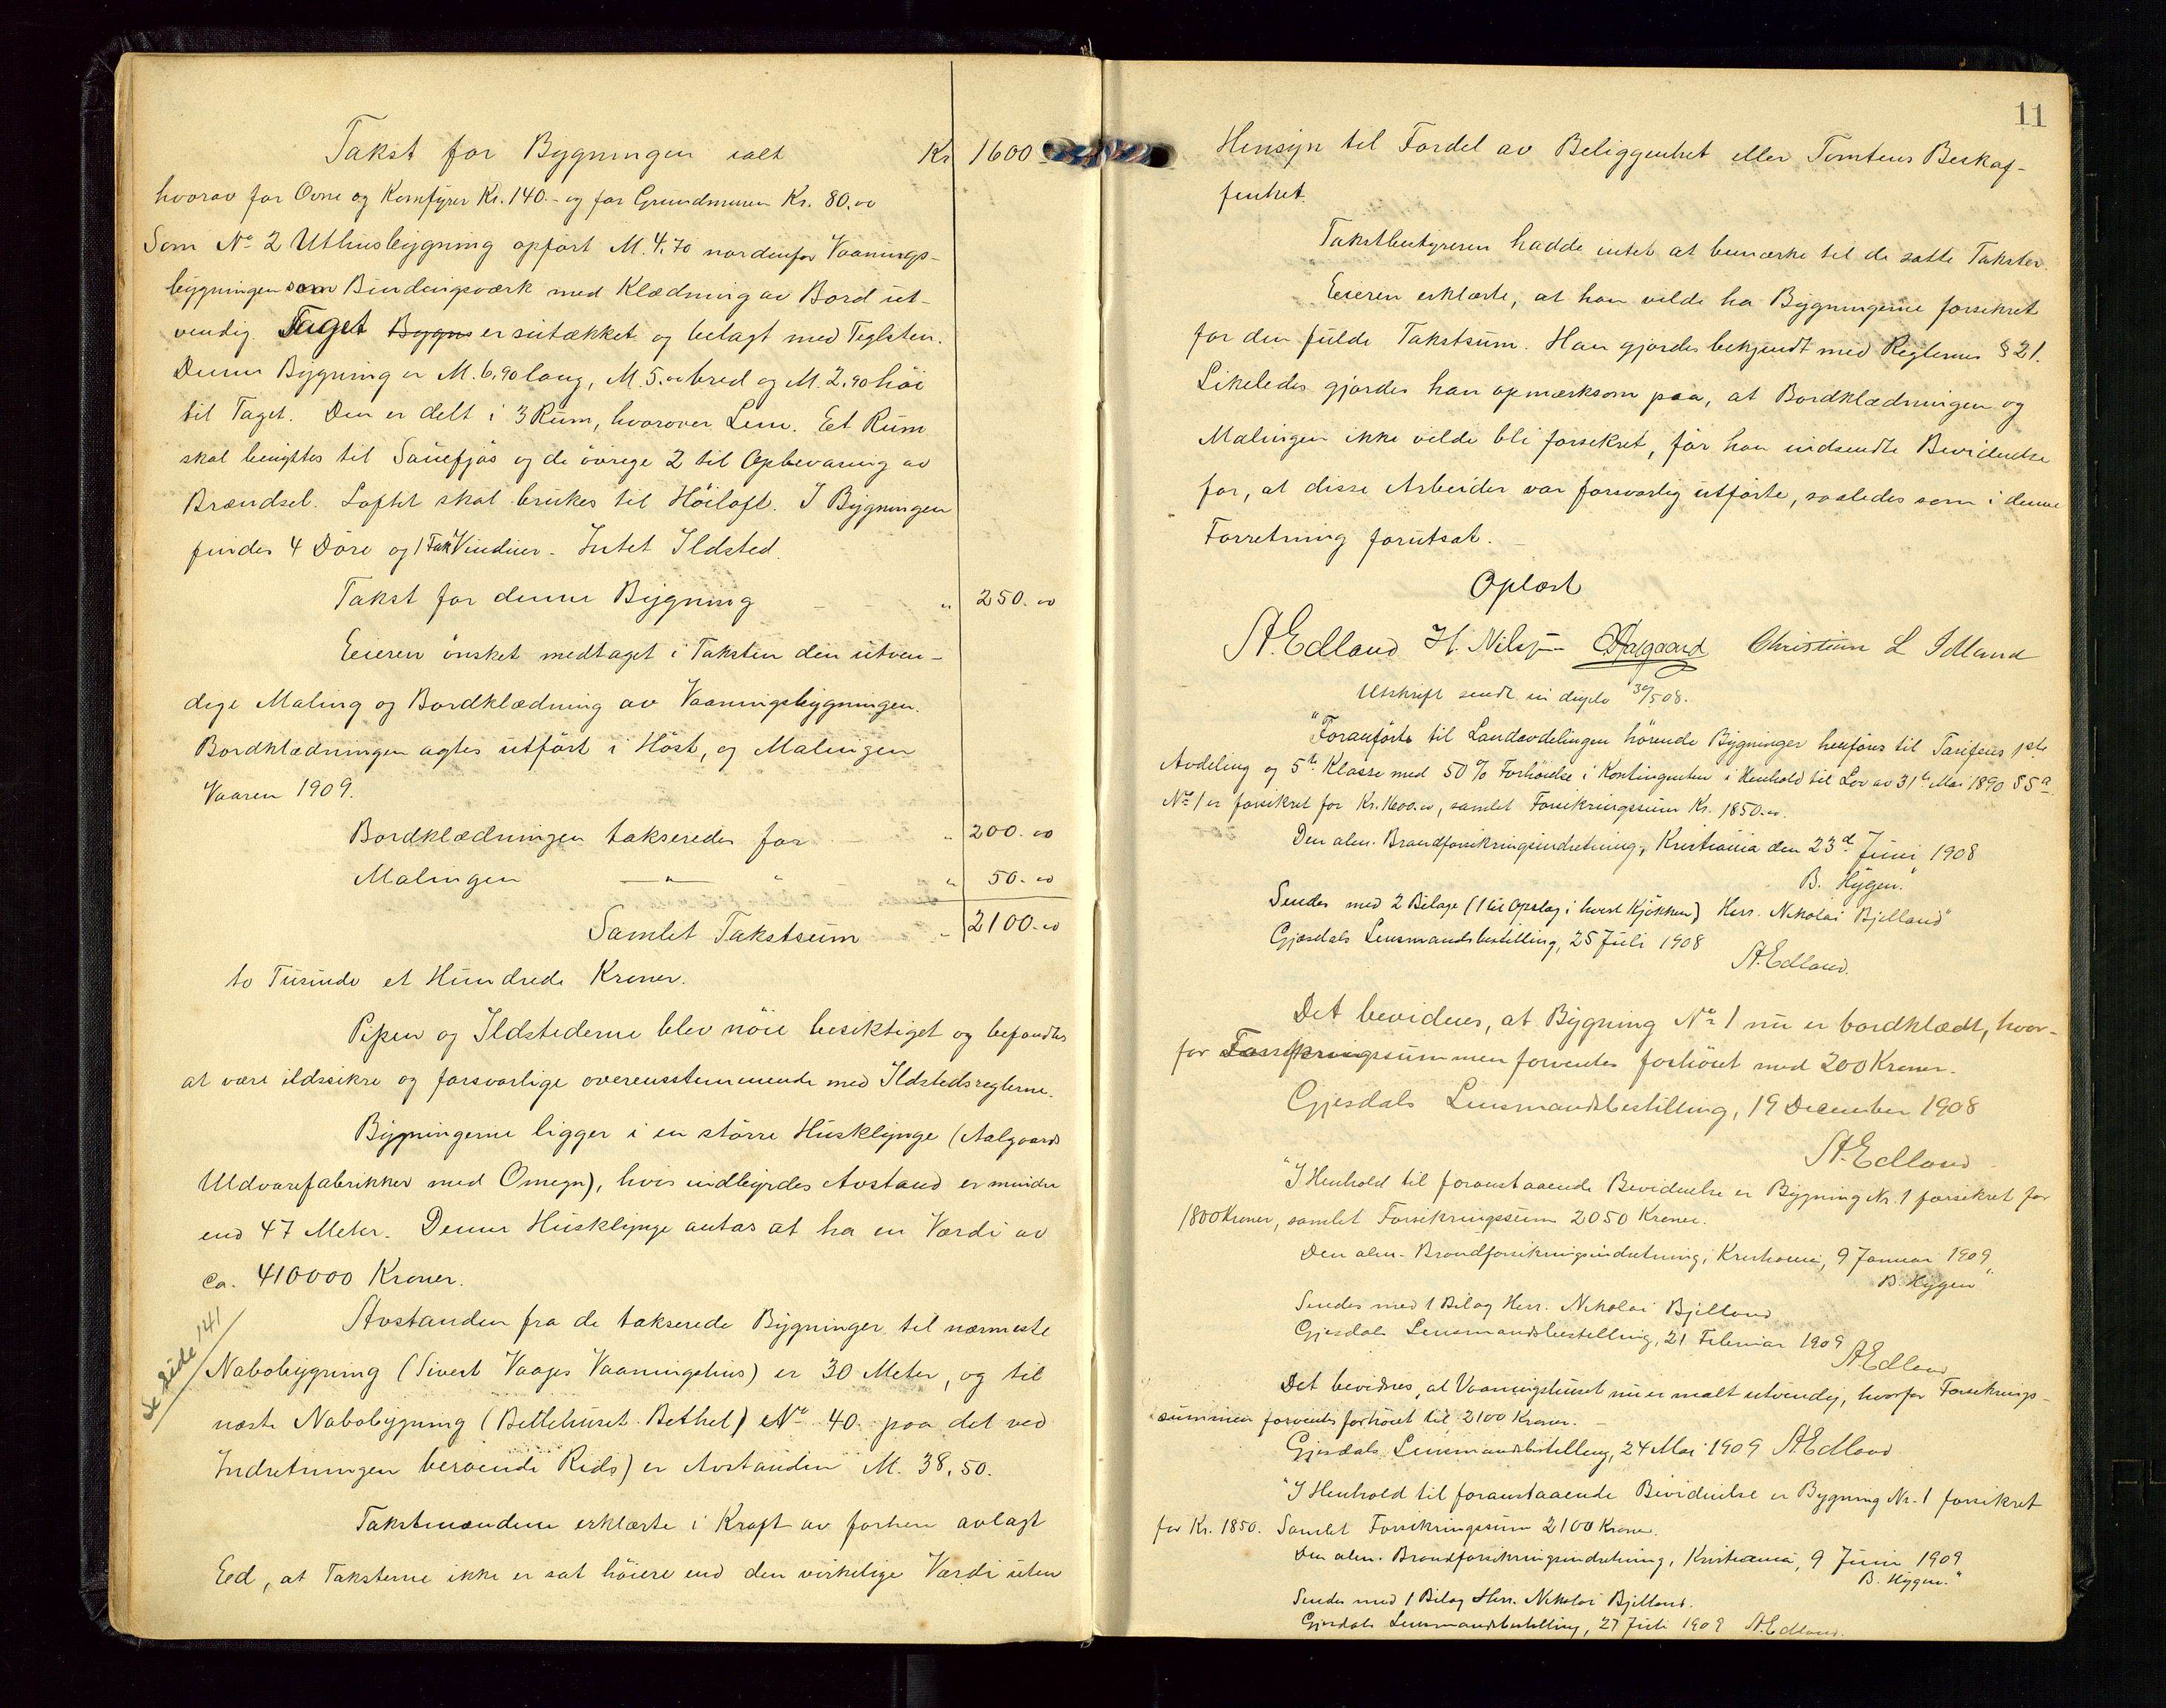 Takst for Bygningen ialt Kr 1600 -
hvorav for Ovne og Komfyrer Kr. 140.- og for Grundmuren Kr. 80.00
Som No 2 Uthusbygning opført M. 4,70 nordenfor Vaanings-
bygningen som Bindingsværk med Klædning av Bord ut-
vendig. Taget Bygns er sutækket og belagt med Teglsten.
Denne Bygning er M. 6,90 lang, M. 5.00 bred og M. 2,90 høi
til Taget. Den er delt i 3 Rum, hvorover Lem. Et Rum
skal benyttes til Sauefjøs og de øvrige 2 til Opbevaring av
Brændsel. Loftet skal brukes til Høiloft. I Bygningen
findes 4 Døre og 1 Fak Vinduer - Intet Ildsted.
Takst for denne Bygning - - " 250.00
Eieren ønsket medtaget i Taksten den utven-
dige Maling og Bordklædning av Vaaningsbygningen.
Bordklædningen agtes utført i Høst, og Malingen
Vaaren 1909.
Bordklædningen takseredes for " 200.00
Malingen — " — " " 50.00
Samlet Takstsum " 2100.00
to Tusinde et Hundrede Kroner.
Pipen og Ildstederne blev nøie besiktiget og befandtes
at være ildssikre og forsvarlige overensstemmende med Ildstedsreglerne.
Bygningerne ligger i en større Husklynge (Aalgaards
Uldvarefabrikker med Omegn), hvis indbyrdes Avstand er mindre
end 47 Meter. Denne Husklynge antas at ha en Værdi av
ca. 410000 Kroner.
Avstanden fra de takserede Bygninger til nærmeste
Se Side 141
Nabobygning (Sivert Vaages Vaaningshus) er 30 Meter, og til
næste Nabobygning (Bettehuset Bethel) No 40 paa det ved
Indretningen beroende Rids) er Avstanden M. 38,50.
Takstmændene erklærte i Kraft av forhen avlagt
Eed, at Taksterne ikke er sat høiere end den virkelige Værdi uten
11
Hensyn til Fordel av Beliggenhet eller Tomtens Beskaf-
fenhet.
Takstbestyreren hadde intet at bemærke til de satte Takster.
Eieren erklærte, at han vilde ha Bygningerne forsikret
for den fulde Takstsum. Han gjordes bekjendt med Reglernes § 21.
Likeledes gjordes han opmærksom paa, at Bordklædningen og
Malingen ikke vilde bli forsikret, før han indsendte Bevidnelse
for, at disse Arbeider var forsvarlig utførte, saaledes som i denne
Forretning forutsat.
Oplæst
St. Edland H. Nilsen Aalgaard Christian L Idland
Utskrift sendt in duplo 30/5 08.
"Foranførte til Landavdelingen hørende Bygninger henføres til Tarifens 1ste
Avdeling og 5te Klasse med 50% Forhøielse i Kontingenten i Henhold til Lov av 31te Mai 1890 § 5 a
No 1 er forsikret for Kr. 1600.00, samlet Forsikringssum Kr. 1850.00.
Den alm. Brandforsikringsindretning, Kristiania den 23d Juni 1908
B. Hygen."
Sendes med 2 Bilage (1 til Opslag i hvert Kjøkken) Herr. Nikolai Bjelland"
Gjesdals Lensmandsbestilling, 25 Juli 1908
St. Edland.
Det bevidnes, at Bygning No 1 nu er bordklædt, hvor-
for Forsikringssummen forventes forhøiet med 200 Kroner.
Gjesdals Lensmandsbestilling, 19 December 1908
St. Edland
"I Henhold til foranstaaende Bevidnelse er Bygning Nr. 1 forsikret for
1800 Kroner, samlet Forsikringssum 2050 Kroner.
Den alm. Brandforsikringsindretning, Kristiania, 9 Januar 1909,
B. Hygen"
Sendes med 1 Bilag Herr. Nikolai Bjelland
Gjesdals Lensmandsbestilling, 21 Februar 1909
St. Edland
Det bevidnes, at Vaaningshuset nu er malt utvendig, hvorfor Forsikrings-
summen forventes forhøiet til 2100 Kroner. -
Gjesdals Lensmandsbestilling, 24 Mai 1909 St. Edland
"I Henhold til foranstaaende Bevidnelse er Bygning Nr. 1 forsikret
for Kr. 1850. Samlet Forsikringssum 2100 Kroner.
Den alm. Brandforsikringsindretning, Kristiania, 9 Juni 1909
B. Hygen."
Sendes med 1 Bilag Herr. Nikolai Bjelland.
Gjesdals Lensmandsbestilling, 27 Juli 1909 St. Edland.